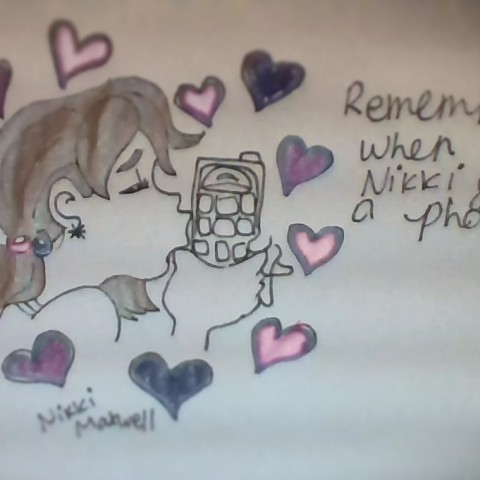 Remem
when
Nikki
a pho
Nikki
Maxwell